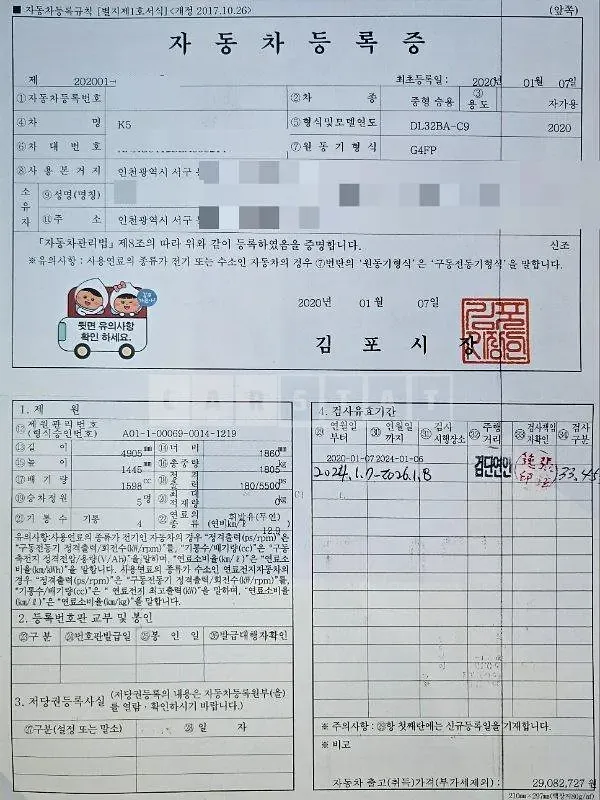 ■ 자동차등록규칙 [별지제1호서식]<개정 2017.10.26>
(앞쪽)
자동차등록증
제 202001-
최초등록일: 2020년 01월 07일
①자동차등록번호
②차 종 중형 승용 ③용도 자가용
④차 명 K5
⑤형식및모델연도 DL32BA-C9 2020
⑥차대번호
⑦원동기형식 G4FP
⑧사용본거지 인천광역시 서구
소유자
⑨성명(명칭)
⑪주 소 인천광역시 서구
「자동차관리법」제8조의 따라 위와 같이 등록하였음을 증명합니다. 신조
※유의사항 : 사용연료의 종류가 전기 또는 수소인 자동차의 경우 ⑦번란의 '원동기형식'은 '구동전동기형식'을 말합니다.
2020년 01월 07일
뒷면 유의사항
확인 하세요.
김포시장
CARSTAT
1. 제 원
⑫제원관리번호
(형식승인번호) A01-1-00069-0014-1219
⑬길 이 4905mm ⑭너 비 1860mm
⑮높 이 1445mm ⑯총중량 1805kg
⑰배기량 1598cc 출력 180/5500
⑲승차정원 5명 최대적재량 0kg
기통수 기통 4 연료의 종류 휘발유(무연) (연비km/ℓ) 12.9
유의사항:사용연료의 종류가 전기인 자동차의 경우 "정격출력(ps/rpm)"은
"구동전동기 정격출력/회전수(kW/rpm)"를, "기통수/배기량(cc)"은 "구동
축전지 정격전압/용량(V/Ah)"을 말하며, "연료소비율(km/ℓ)"은 "연료소
비율(km/kWh)"을 말합니다. 사용연료의 종류가 수소인 연료전지자동차의
경우 "정격출력(ps/rpm)"은 "구동전동기 정격출력/회전수(kW/rpm)"를,
"기통수/배기량(cc)"은 "연료전지 최고출력(kW)"을 말하며, "연료소비율
(km/ℓ)"은 "연료소비율(km/kg)"을 말합니다.
2. 등록번호판 교부 및 봉인
구 분 번호판발급일 봉인일 발급대행자확인
3. 저당권등록사실 (저당권등록의 내용은 자동차등록원부(을)
를 열람·확인하시기 바랍니다.)
구분(설정 또는 말소) 일 자
4. 검사유효기간
연월일부터 연월일까지 검사시행장소 주행거리 검사책임자확인 검사구분
2020-01-07 2024-01-06
2024.1.7-2026.1.8
검단연인
※ 주의사항: 항 첫째란에는 신규등록일을 기재합니다.
※ 비고
자동차 출고(취득)가격(부가세제외): 29,082,727 원
210mm×297mm(백상지80g/㎡)